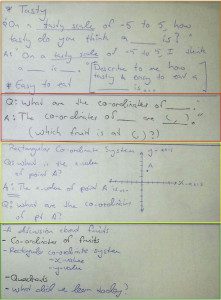 * Tasty
Q: On a tasty scale of -5 to 5, how
tasty do you think a ___ is?
A: On a tasty scale of -5 to 5, I think
a ___ is ___. "Describe to me how
tasty & easy to eat a
* Easy to eat ___ is..."
Q: What are the co-ordinates of ___.
A: The co-ordinates of ___ are (,).
(which fruit is at (,)?)
Rectangular Co-ordinate System
Q: What is the x-value
of point A?
A: The x-value of point A is...
Q: What are the co-ordinates
of pt A?
- A discussion about fruits
- Co-ordinates of fruits
- Rectangular co-ordinate system
- x-value
- y-value
- Quadrants
- What did we learn today?